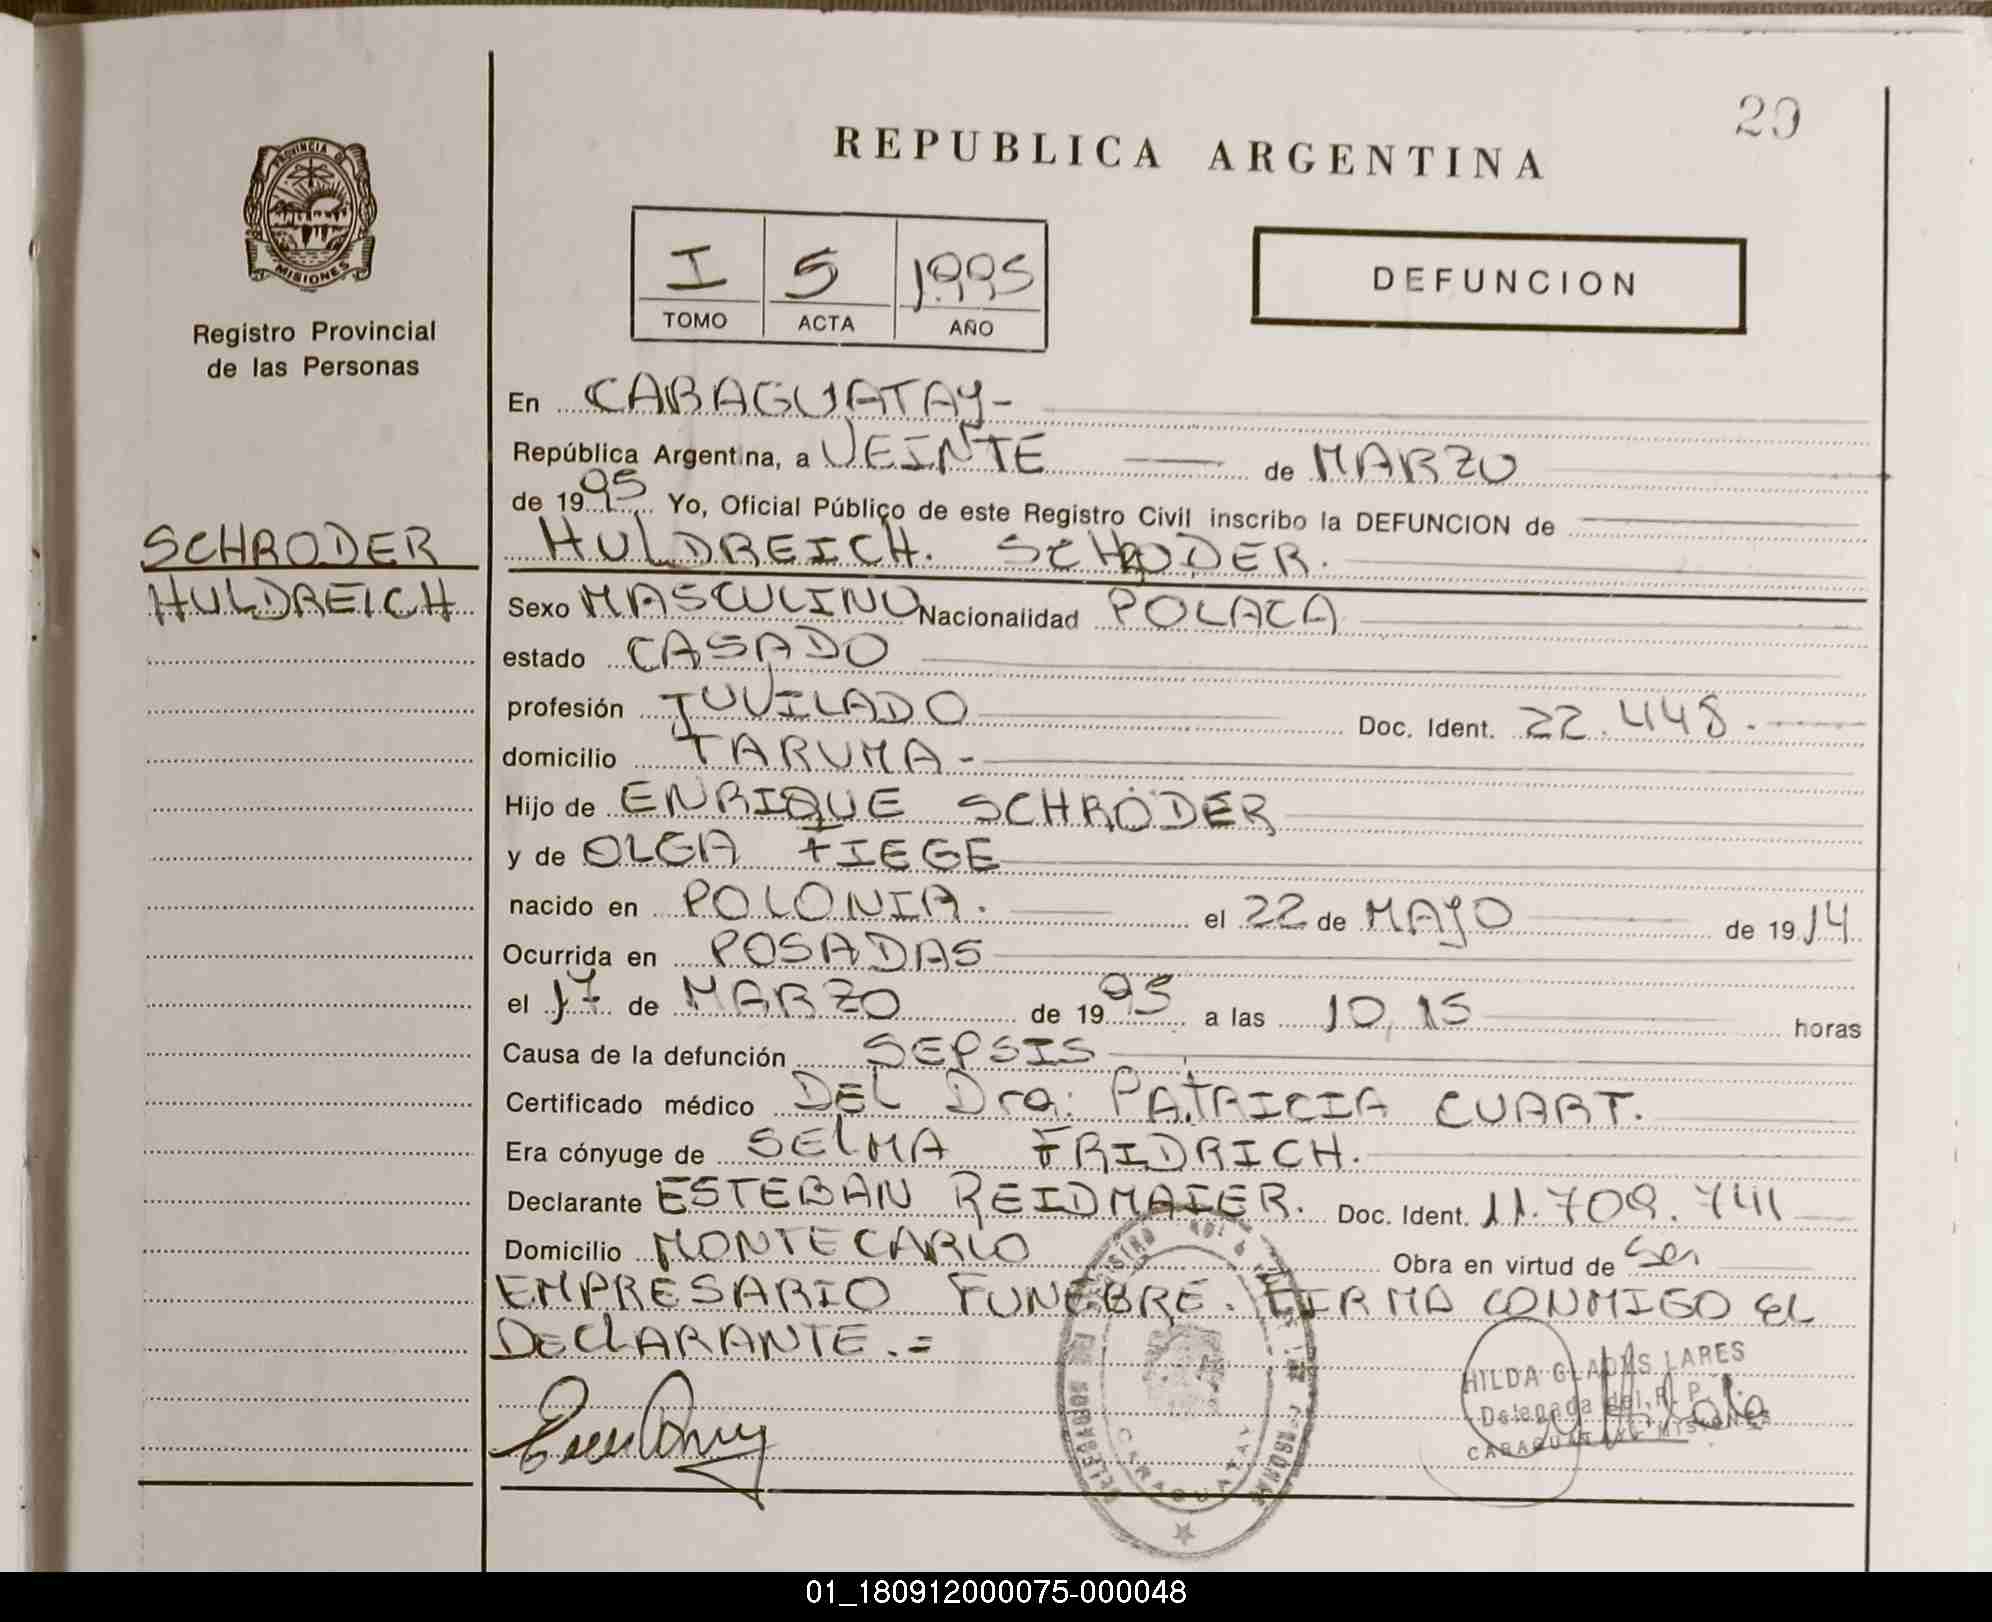 29
REPUBLICA ARGENTINA
PROVINCIA DE
MISIONES
Registro Provincial
de las Personas
I 5 1995
TOMO ACTA AÑO
DEFUNCION
SCHRODER
HULDREICH
En CARAGUATAY-
República Argentina, a VEINTE de MARZO
de 1995 Yo, Oficial Público de este Registro Civil inscribo la DEFUNCION de
HULDREICH. SCHRODER.
Sexo MASCULINO Nacionalidad POLACA
estado CASADO
profesión JUVILADO Doc. Ident. 22.448.
domicilio TARUMA-
Hijo de ENRIQUE SCHRÖDER
y de OLGA FIEGE
nacido en POLONIA. el 22 de MAYO de 1914
Ocurrida en POSADAS
el 17 de MARZO de 1995 a las 10,15 horas
Causa de la defunción SEPSIS
Certificado médico DEL Dra: PATRICIA CUART.
Era cónyuge de SELMA FRIDRICH.
Declarante ESTEBAN REIDMAIER. Doc. Ident. 11.709.741
Domicilio MONTECARLO Obra en virtud de Ser
EMPRESARIO FUNEBRE. FIRMA CONMIGO EL
DECLARANTE.=
HILDA GLADYS LARES
Delegada del R. P.
CARAGUATAY MISIONES
CARAGUATAY
01_180912000075-000048